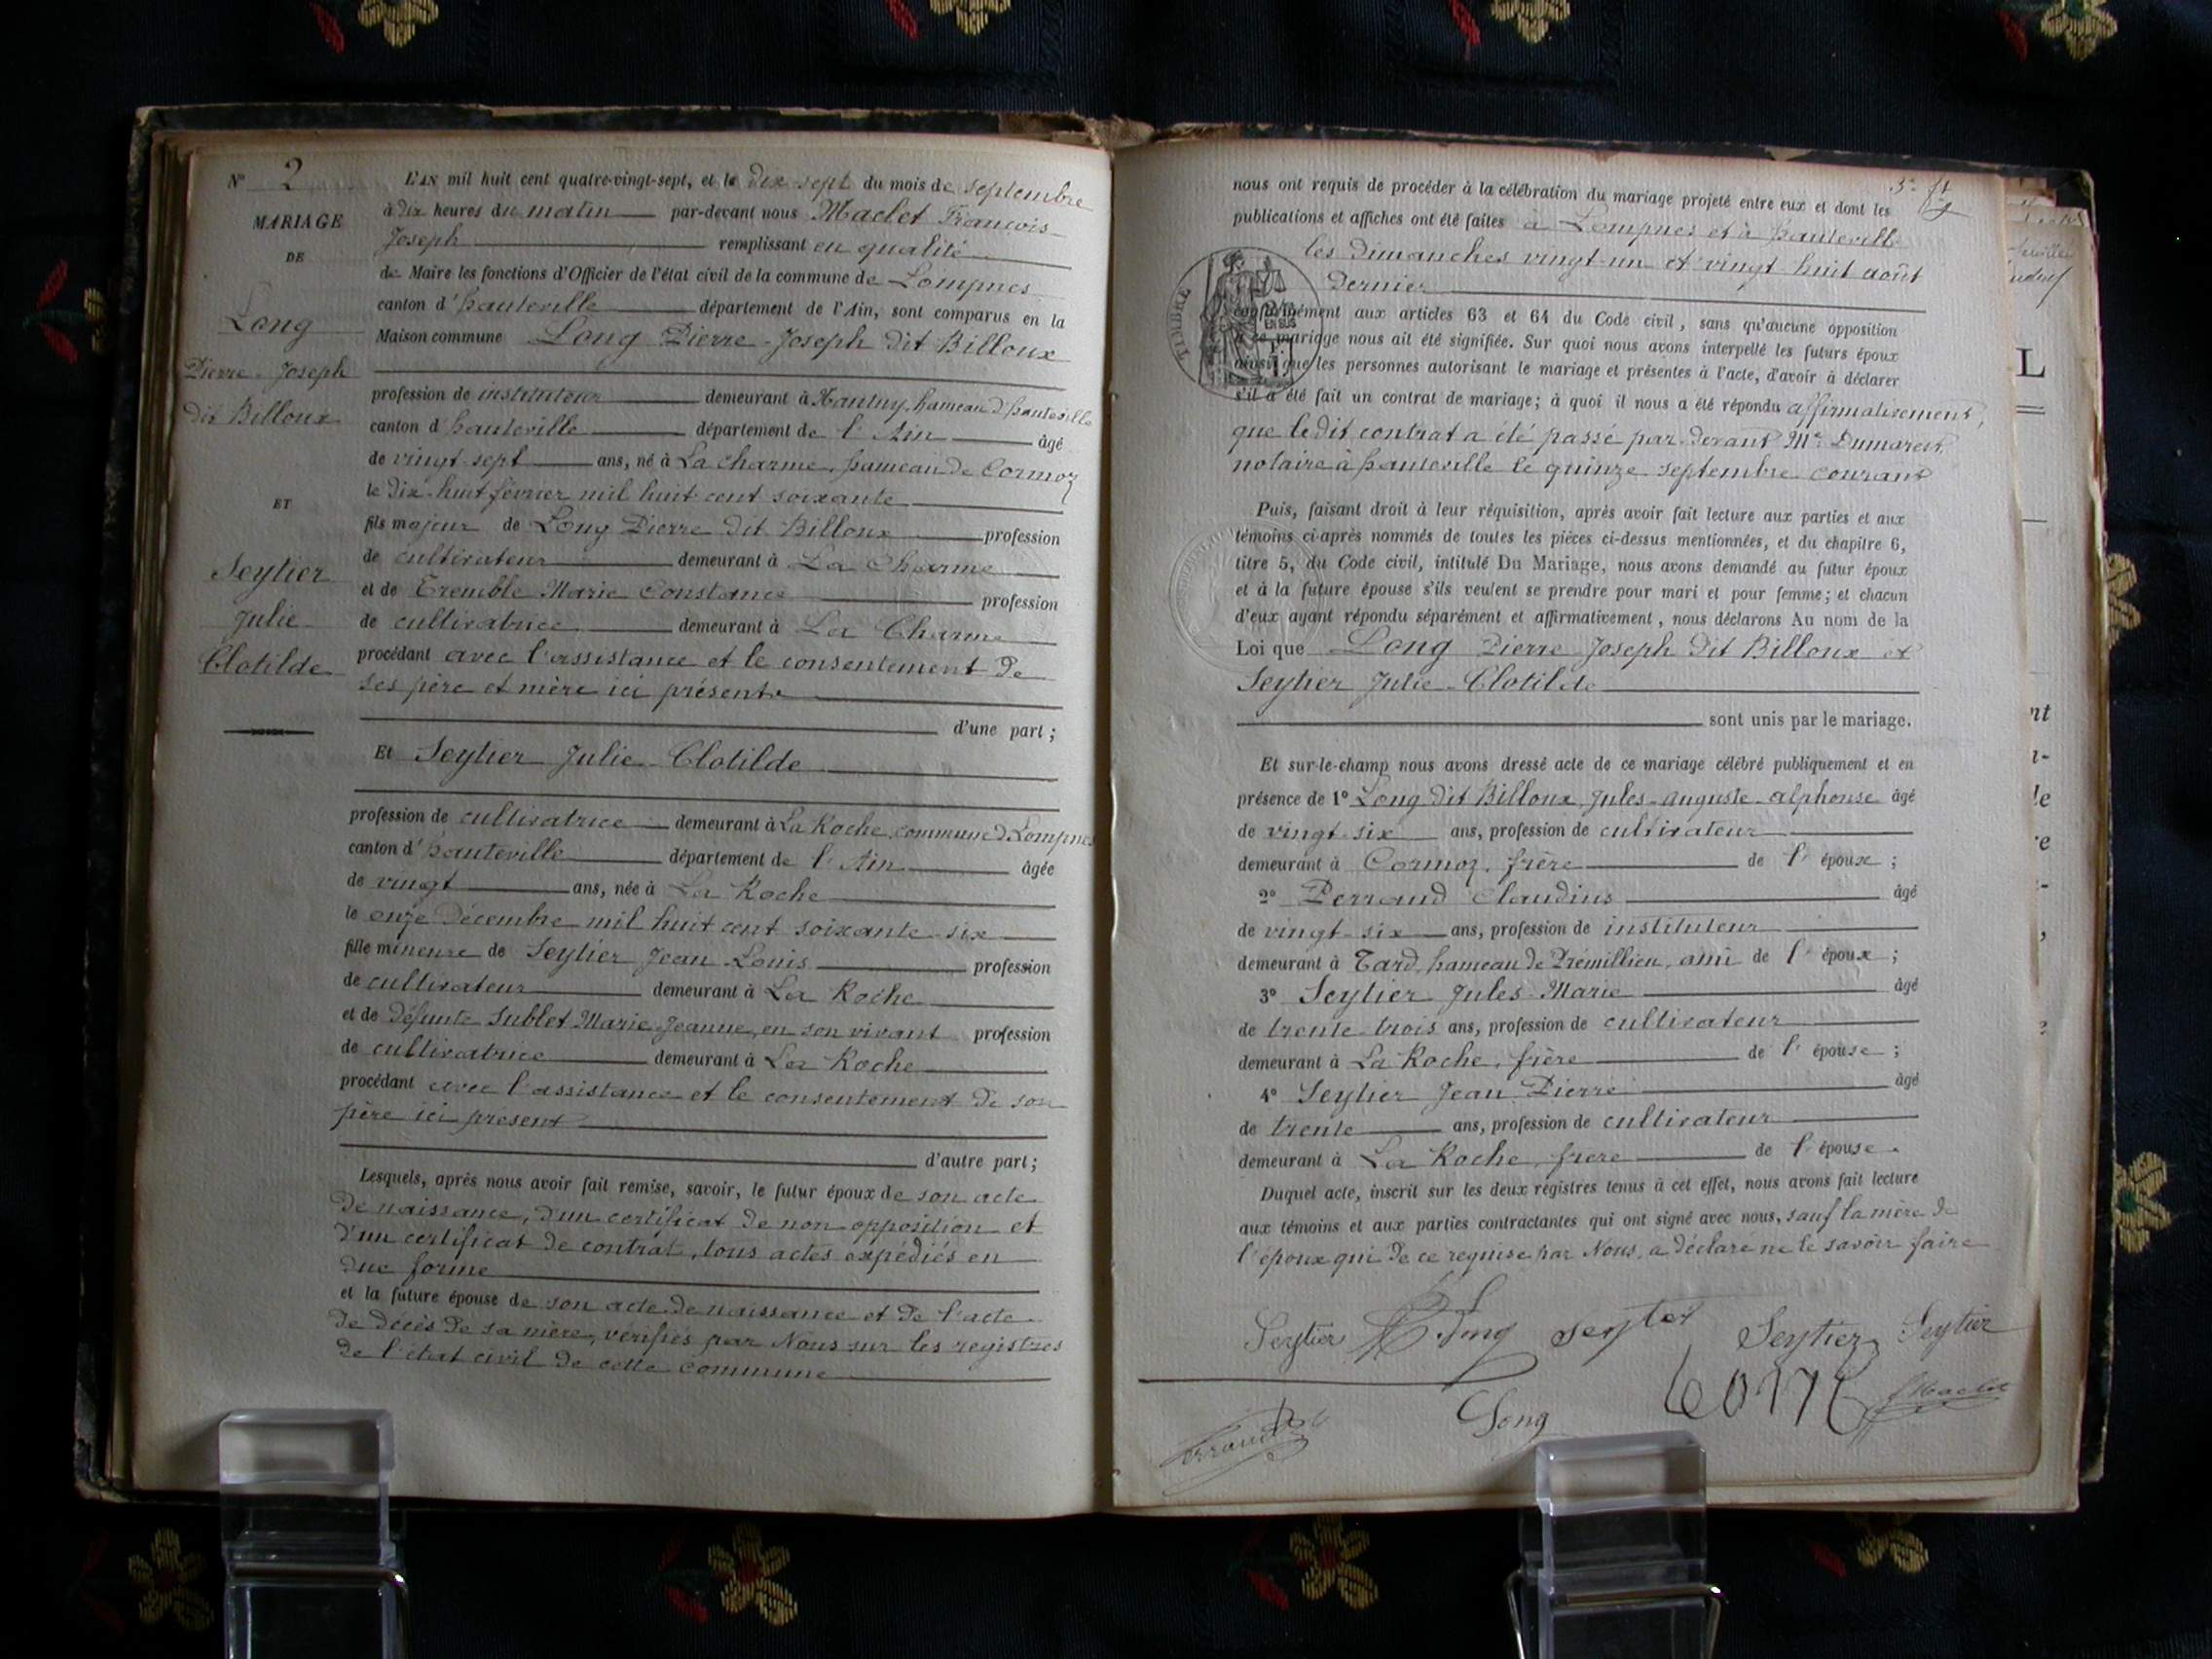 N° 2
MARIAGE
DE
Long
Pierre-Joseph
dit Billoux
ET
Seytier
Julie
Clotilde
L'AN mil huit cent quatre-vingt-sept, et le dix sept du mois de septembre
à dix heures du matin par-devant nous Maclet François
Joseph remplissant en qualité
de Maire les fonctions d'Officier de l'état civil de la commune de Lompnes
canton d'hauteville département de l'Ain, sont comparus en la
Maison commune Long Pierre-Joseph dit Billoux
profession de instituteur demeurant à hameau d'hauteville
canton d'hauteville département de l'Ain âgé
de vingt-sept ans, né à La Charme, hameau de Cormoz
le dix-huit février mil huit cent soixante
fils majeur de Long Pierre dit Billoux profession
de cultivateur demeurant à La Charme
et de Tremble Marie Constance profession
de cultivatrice demeurant à La Charme
procédant avec l'assistance et le consentement de
ses père et mère ici présents
d'une part ;
Et Seytier Julie-Clotilde
profession de cultivatrice demeurant à La Roche, commune d Lompnes
canton d'hauteville département de l'Ain âgée
de vingt ans, née à La Roche
le onze décembre mil huit cent soixante-six
fille mineure de Seytier Jean-Louis profession
de cultivateur demeurant à La Roche
et de défunte Sublet Marie-Jeanne, en son vivant profession
de cultivatrice demeurant à La Roche
procédant avec l'assistance et le consentement de son
père ici présent
d'autre part ;
Lesquels, après nous avoir fait remise, savoir, le futur époux de son acte
de naissance, d'un certificat de non opposition et
d'un certificat de contrat, tous actes expédiés en
due forme
et la future épouse de son acte de naissance et de l'acte
de décès de sa mère, vérifiés par Nous sur les registres
de l'état civil de cette commune
nous ont requis de procéder à la célébration du mariage projeté entre eux et dont les
publications et affiches ont été faites à Lompnes et à hauteville
les dimanches vingt-un et vingt huit août
dernier
TIMBRE
EN SUS
conformément aux articles 63 et 64 du Code civil, sans qu'aucune opposition
à ce mariage nous ait été signifiée. Sur quoi nous avons interpellé les futurs époux
ainsi que les personnes autorisant le mariage et présentes à l'acte, d'avoir à déclarer
s'il a été fait un contrat de mariage ; à quoi il nous a été répondu affirmativement,
que ledit contrat a été passé par-devant Me Dumarest
notaire à hauteville le quinze septembre courant
Puis, faisant droit à leur réquisition, après avoir fait lecture aux parties et aux
témoins ci-après nommés de toutes les pièces ci-dessus mentionnées, et du chapitre 6,
titre 5, du Code civil, intitulé Du Mariage, nous avons demandé au futur époux
et à la future épouse s'ils veulent se prendre pour mari et pour femme ; et chacun
d'eux ayant répondu séparément et affirmativement, nous déclarons Au nom de la
Loi que Long Pierre Joseph dit Billoux et
Seytier Julie-Clotilde
sont unis par le mariage.
Et sur-le-champ nous avons dressé acte de ce mariage célébré publiquement et en
présence de 1° Long dit Billoux Jules-Auguste-Alphonse âgé
de vingt-six ans, profession de cultivateur
demeurant à Cormoz, frère de l'époux ;
2° Perraud Claudius âgé
de vingt-six ans, profession de instituteur
demeurant à Tard, hameau de Prémillieu, ami de l'époux ;
3° Seytier Jules-Marie âgé
de trente-trois ans, profession de cultivateur
demeurant à La Roche, frère de l'épouse ;
4° Seytier Jean Pierre âgé
de trente ans, profession de cultivateur
demeurant à La Roche, frère de l'épouse.
Duquel acte, inscrit sur les deux régistres tenus à cet effet, nous avons fait lecture
aux témoins et aux parties contractantes qui ont signé avec nous, sauf la mère de
l'époux qui de ce requise par Nous, a déclaré ne le savoir faire
Seytier Long Seyter Seytier Seytier
Perraud Long Long Maclet